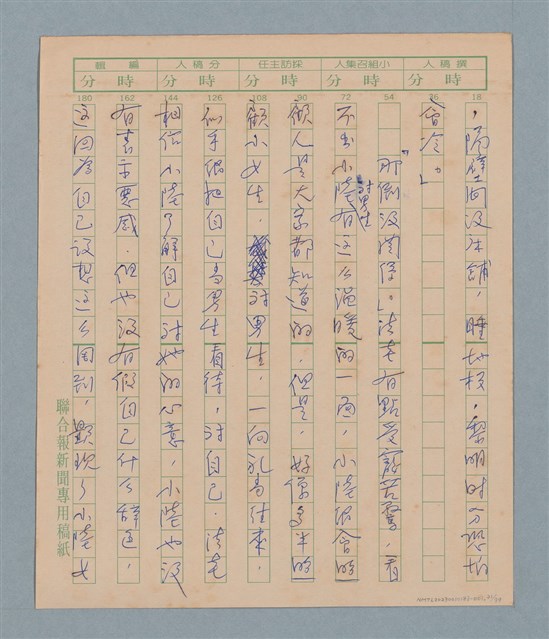 撰稿人 小組召集人 採訪主任 分稿人 編輯
時 分 時 分 時 分 時 分 時 分
18 36 54 72 90 108 126 144 162 180
，隔壁間沒床舖，睡地板，黎明時分恐怕
會冷。」
「那倒沒關係。」法
有點受寵若驚，看
不出小陸對男生有這么溫暖的一面，小陸很會照
顧人是大家都知道的，但是，好像多半照
顧小女生，對男生，一向礼尚往來，
似乎很把自己当男生看待，對自己，
相信小陸了解自己對她的心意，小陸也沒
有表示惡感，但也沒有假自己什么辞色，
這回為自己設想這么周到，顯現了小陸女
聯合報新聞專用稿紙